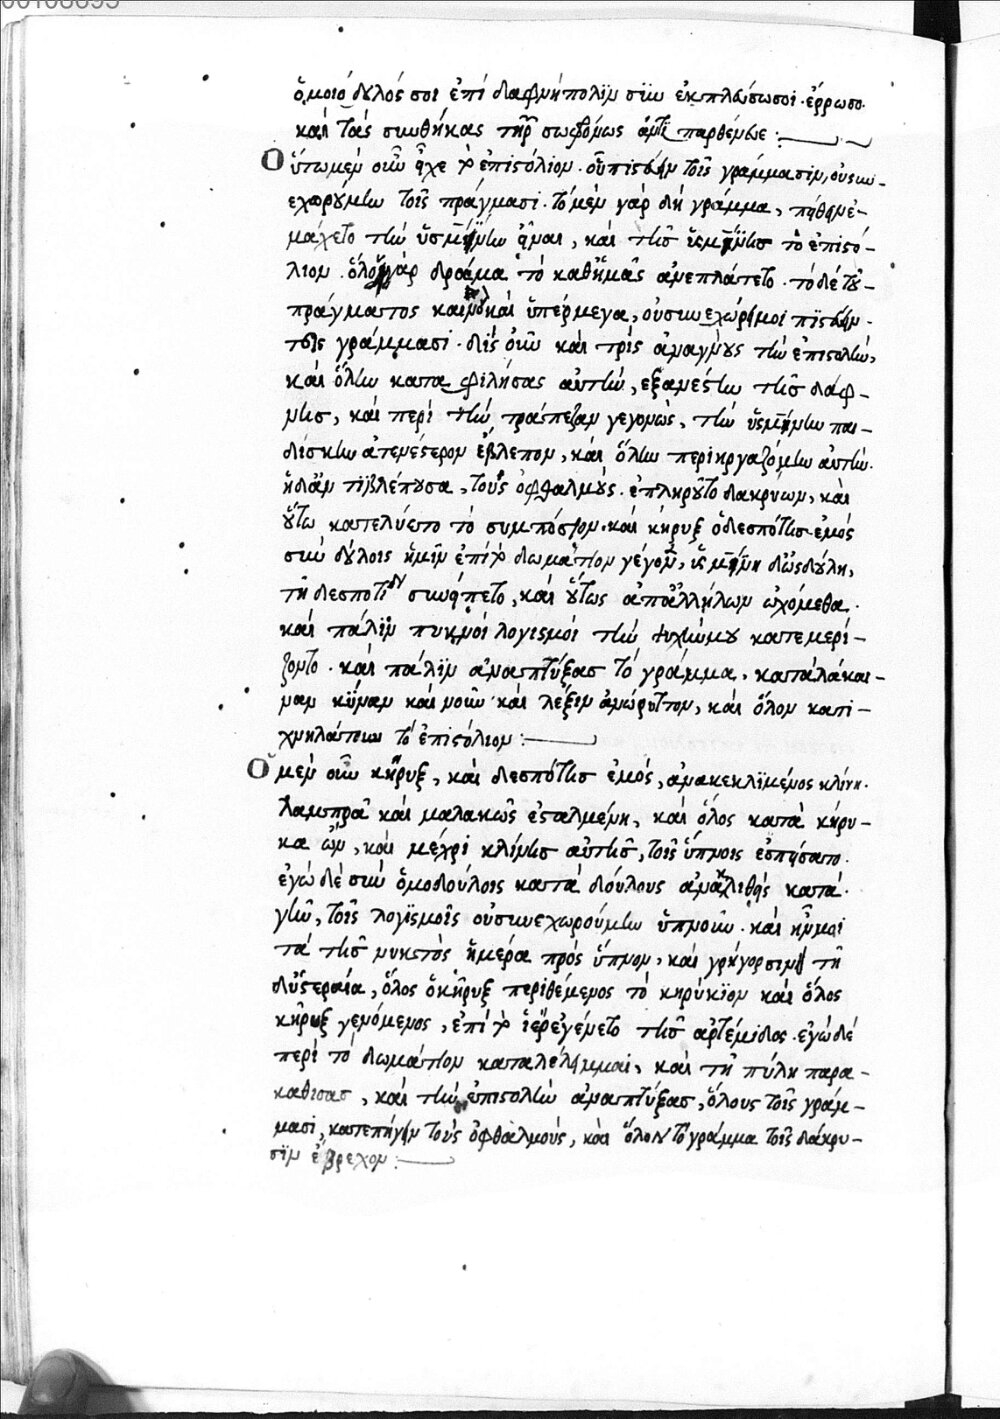 ὁμοιόδουλός σοι ἐπὶ δαφνήπολιν σὺν ἐκπλώσωσοι· ἔρρωσο.
καὶ τὰς συνθήκας τήρει σωφρόνως παρθένευε:
Οὕτω μὲν οὖν εἶχε τὸ ἐπιστόλιον· οὐ πιστεύειν τοῖς γράμμασιν, οὐ συν-
εχωρούμην τοῖς πράγμασι· τὸ μὲν γὰρ δὴ γράμμα, πείθειν ἐ-
μάχετο τὴν ὑσμίνην εἶναι, καὶ τῆς ὑσμίνης τὸ ἐπιστό-
λιον· ὅλον γὰρ δρᾶμα τὸ καθ' ἡμᾶς ἀνεπλάττετο· τὸ δὲ τοῦ
πράγματος καινὸν καὶ ὑπέρμεγα, οὐ συνεχώρει μοι πιστεύειν
τοῖς γράμμασι· δὶς οὖν καὶ τρὶς ἀναγνοὺς τὴν ἐπιστολὴν,
καὶ ὅλην καταφιλήσας αὐτὴν, ἐξανέστην τῆς δάφ-
νης, καὶ περὶ τὴν τράπεζαν γεγονὼς, τὴν ὑσμίνην παι-
δίσκην ἀτενέστερον ἔβλεπον, καὶ ὅλην περιηργαζόμην αὐτήν·
ἡ δ' ἀντιβλέπουσα, τοὺς ὀφθαλμοὺς ἐπληροῦτο δακρύων, καὶ
οὕτω κατελύετο τὸ συμπόσιον· καὶ κῆρυξ ὁ δεσπότης ἐμὸς
σὺν δούλοις ἡμῖν ἐπὶ τὸ δωμάτιον γέγονεν, ὑσμίνη δ' ὡς δούλη,
τῇ δεσποτίδι συνείπετο, καὶ οὕτως ἀπ' ἀλλήλων ᾠχόμεθα·
καὶ πάλιν πυκνοὶ λογισμοὶ τὴν ψυχήν μου κατεμερί-
ζοντο· καὶ πάλιν ἀναπτύξας τὸ γράμμα, κατα
καὶ νοῦν καὶ λέξιν ἀνώρυττον, καὶ ὅλον κατι-
χνηλάτουν τὸ ἐπιστόλιον:
Ὁ μὲν οὖν κῆρυξ, καὶ δεσπότης ἐμὸς, ἀνακεκλιμένος κλίνῃ
λαμπρᾷ καὶ μαλακῶς ἐσταλμένῃ, καὶ ὅλος κατὰ κήρυ-
κα ὢν, καὶ μέχρι κλίνης αὐτῆς, τοῖς ὕπνοις ἐσπείσατο·
ἐγὼ δὲ σὺν ὁμοδούλοις κατὰ δούλους ἀνακλιθεὶς κατὰ
γῆν, τοῖς λογισμοῖς οὐ συνεχωρούμην ὑπνοῦν· καὶ ἦν μοι
τὰ τῆς νυκτὸς ἡμέρα πρὸς ὕπνον, καὶ γρήγορσιν· τῇ
δ' ὑστεραίᾳ, ὅλος ὁ κῆρυξ περιθέμενος τὸ κηρύκιον καὶ ὅλος
κῆρυξ γενόμενος, ἐπὶ τὸ ἱερὸν ἐγένετο τῆς ἀρτέμιδος· ἐγὼ δὲ
περὶ τὸ δωμάτιον καταλέλειμμαι, καὶ τῇ πύλῃ παρα-
καθίσας, καὶ τὴν ἐπιστολὴν ἀναπτύξας, ὅλους τοῖς γράμ-
μασι, κατεπήγειν τοὺς ὀφθαλμοὺς, καὶ ὅλον τὸ γράμμα τοῖς δάκρυ-
σιν ἔβρεχον: